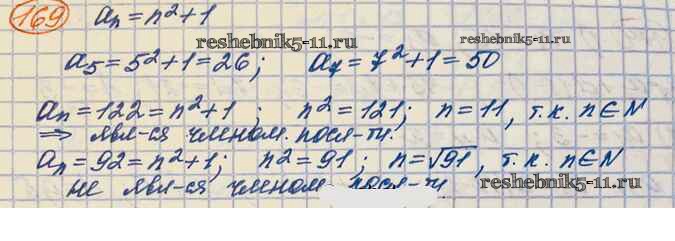 169 aₙ = n² + 1
reshebnik5-11.ru
a₅ = 5² + 1 = 26 ; a₇ = 7² + 1 = 50
aₙ = 122 = n² + 1 ; n² = 121 ; n = 11 , т.к. n ∈ N
⇒ явл-ся членом посл-ти.
aₙ = 92 = n² + 1 ; n² = 91 ; n = √91 , т.к. n ∈ N
не явл-ся членом посл-ти
reshebnik5-11.ru